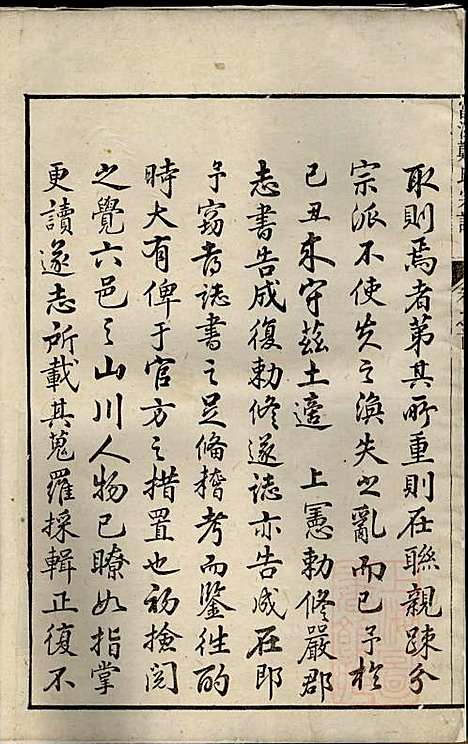 取則焉者第其所重則在聯親疎分
宗派不使失之渙失之亂而已予於
己丑来守茲土適　上憲勅修嚴郡
志書告成復勅修遂誌亦告成在郎
予窃喜誌書之足備稽考而鑒往酌
時大有俾于官方之措置也初撿閱
之覺六邑之山川人物已瞭如指掌
更讀遂志所載其蒐羅採輯正復不